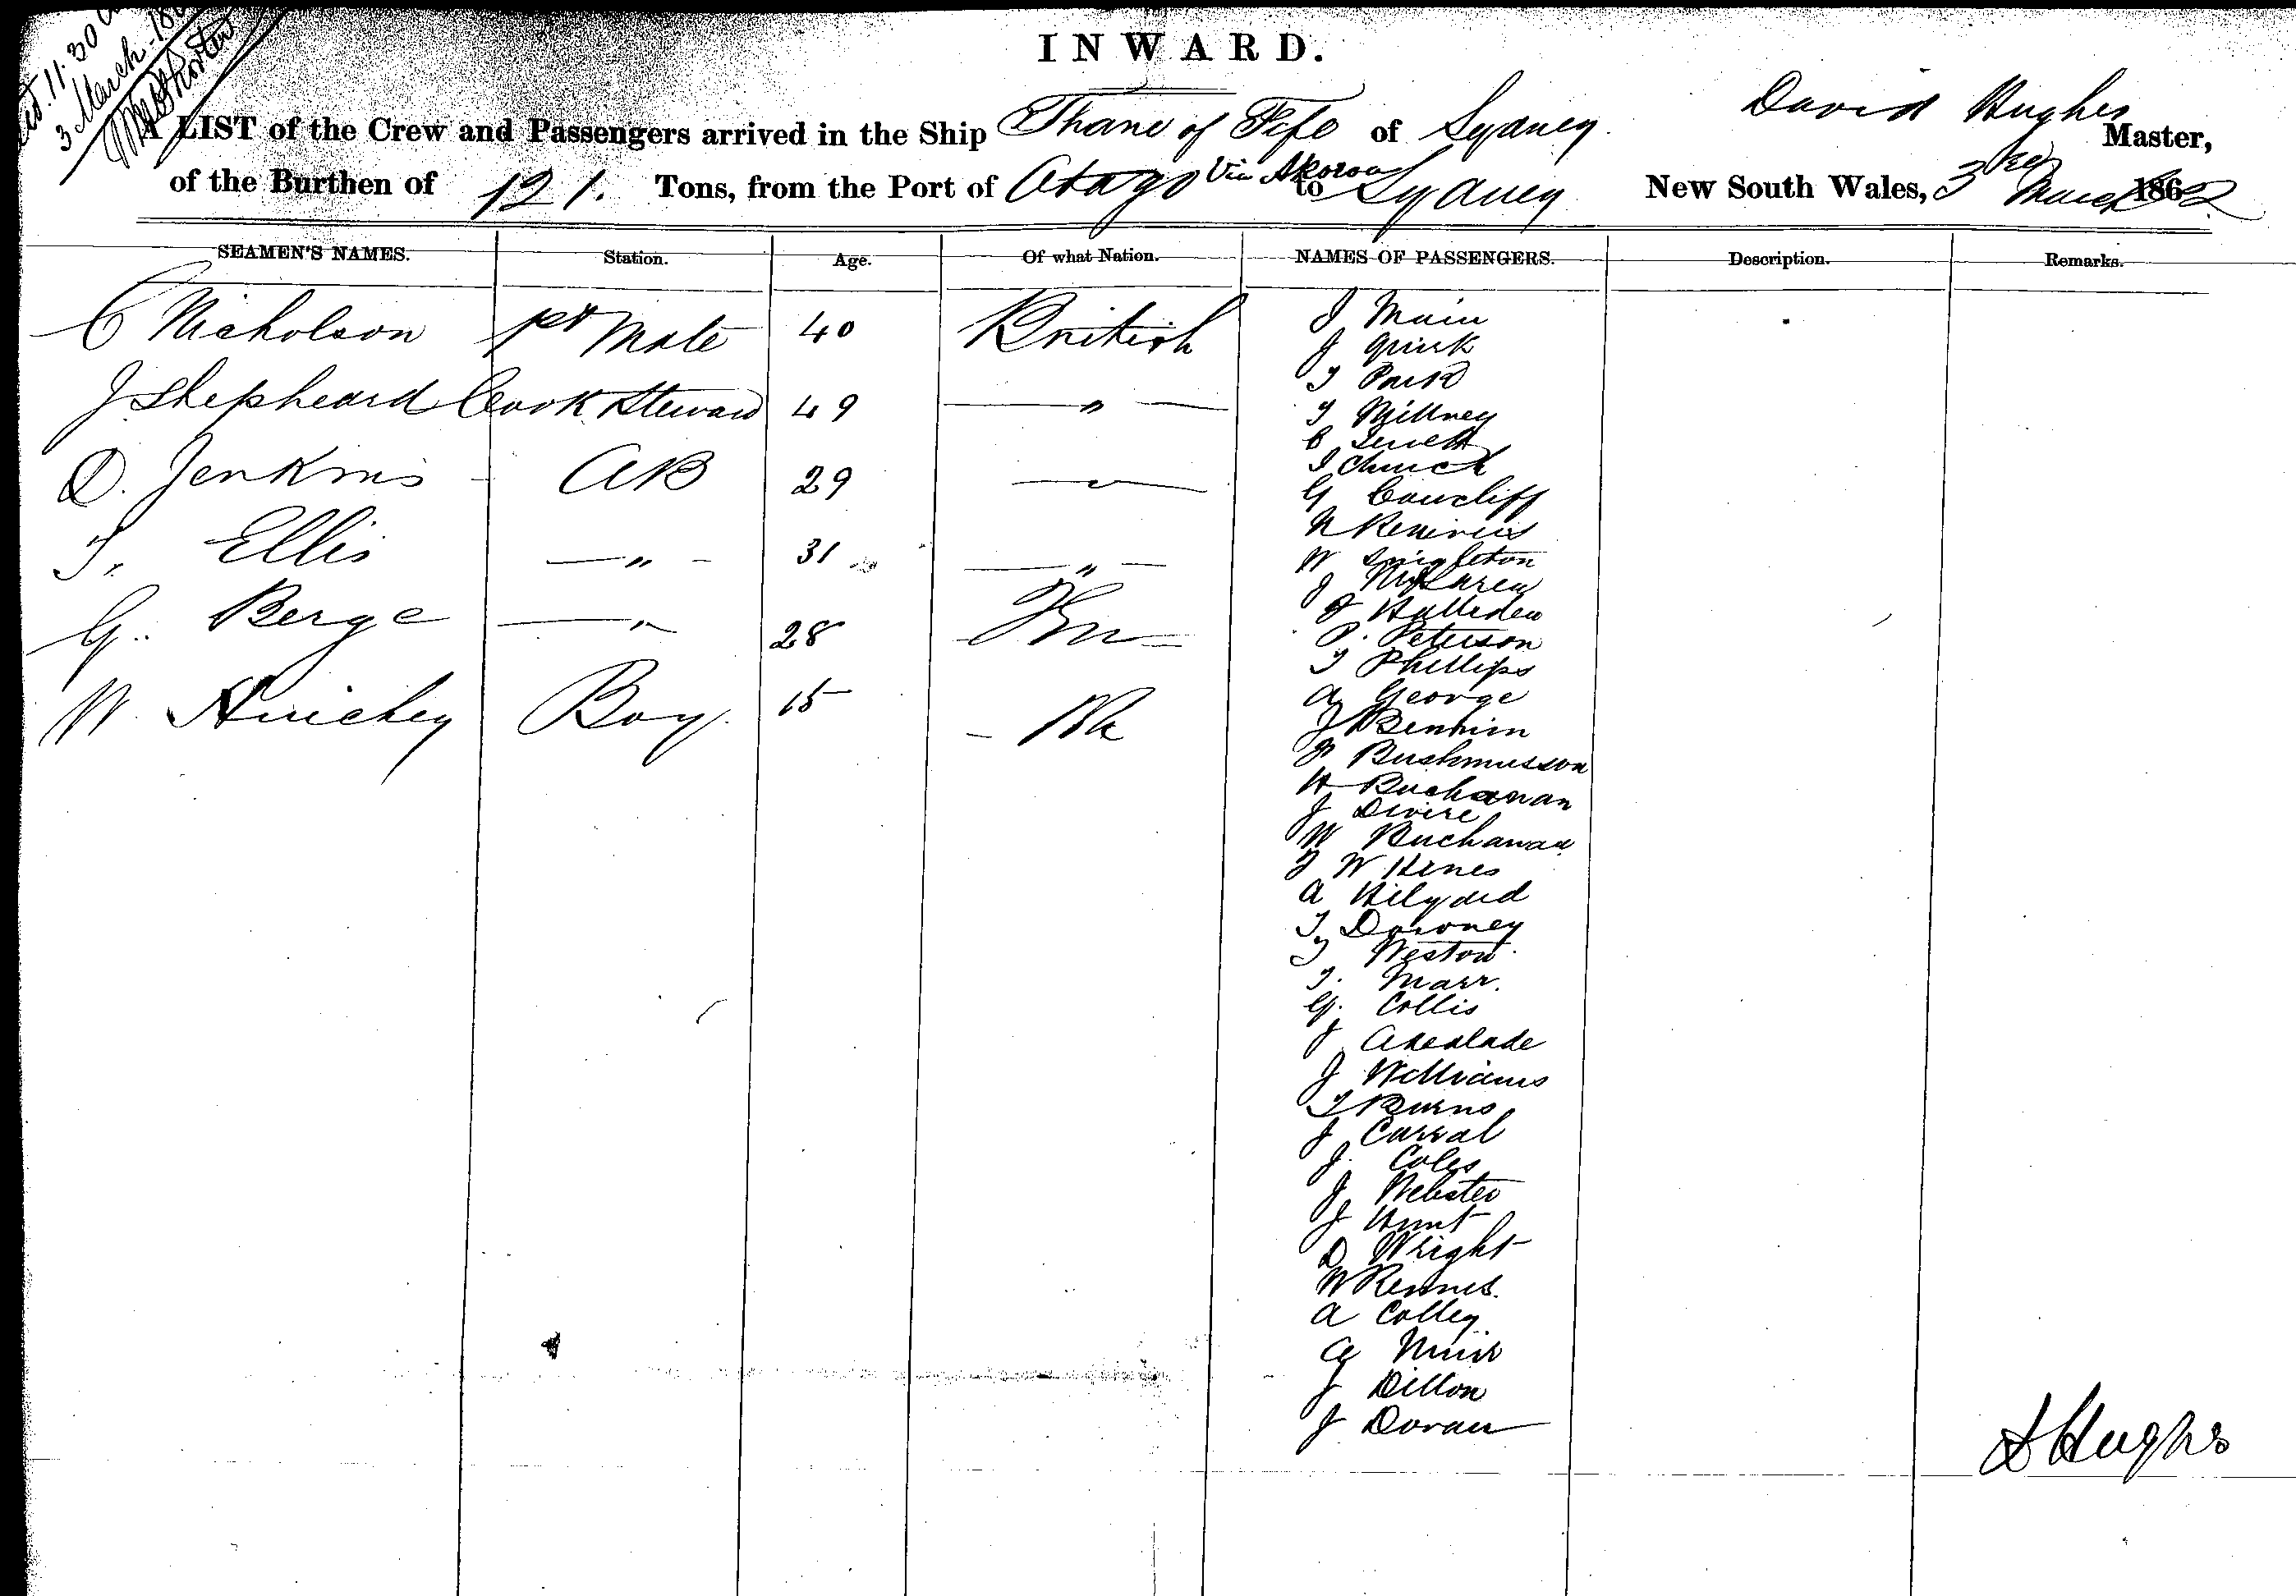 11.30
3 March
INWARD.
A LIST of the Crew and Passengers arrived in the Ship Thane of Fife of Sydney David Hughes Master,
of the Burthen of 121. Tons, from the Port of Otago Via Akoroa to Sydney New South Wales, 3rd March 1862
SEAMEN'S NAMES. Station. Age. Of what Nation. NAMES OF PASSENGERS. Description. Remarks.
C Nicholson 1st Mate 40 British
J Shepheard Cook Steward 49 — " —
D. Jenkins AB 29 — " —
T. Ellis — " — 31 — " —
G. Berge — " — 28
W. Hinchey Boy 15
J Main
J Quirk
T Park
T Millney
C
J Church
G Cowcliff
N
W Singleton
J McLaren
J Halleden
P. Peterson
T Phillips
A George
J Bennim
J Bushmusson
H Buchanan
J Divire
W Buchanan
J W Hines
A Hilyard
T Doroney
T Weston
T. Marr.
G. Collis
J
J Williams
T Burns
J Carral
J. Coles
J Webster
J Hunt
D Wright
W Rennes.
A Colley
A Muir
J Dillon
J Doran
D Hughes